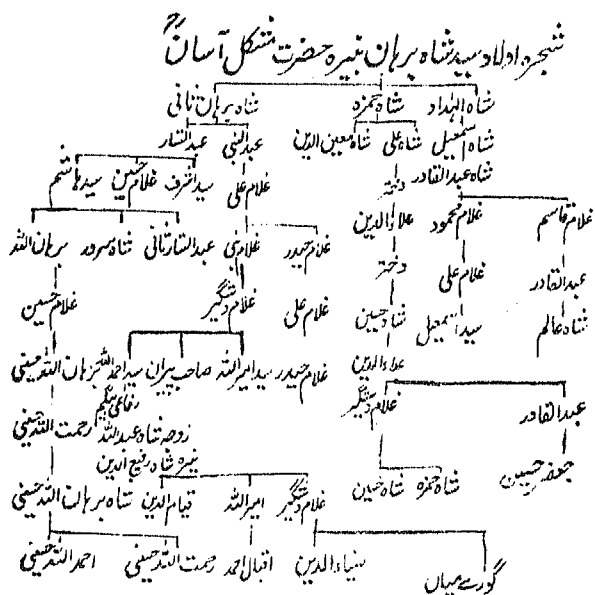 شجرہ اولاد سید شاہ برہان نبیرہ حضرت مشکل آسانؒ
شاہ الہداد شاہ حمزہ شاہ برہان ثانی
شاہ اسمعیل شاہ علی شاہ معین الدین عبدالنبی عبدالستار
شاہ عبدالقادر دختر غلام علی سید اشرف غلام حسین سید ہاشم
غلام قاسم غلام محمود علاء الدین غلام حیدر غلام نبی عبدالستار ثانی شاہ سرور برہان اللہ
عبدالقادر غلام علی دختر غلام علی غلام دستگیر غلام حسین
شاہ عالم سید اسمعیل شاہ حسین
علاء الدین غلام حیدر سید امیر اللہ صاحب پیران سید احمد اللہ برہان اللہ حسینی
عبدالقادر غلام دستگیر رفاعی بیگم رحمت اللہ حسینی
زوجہ شاہ عبداللہ
نبیرہ شاہ رفیع الدین
جعفر حسین شاہ حمزہ شاہ حسین غلام دستگیر امیر اللہ قیام الدین شاہ برہان اللہ حسینی
گورے میاں ضیاء الدین اقبال احمد رحمت اللہ حسینی احمد اللہ حسینی